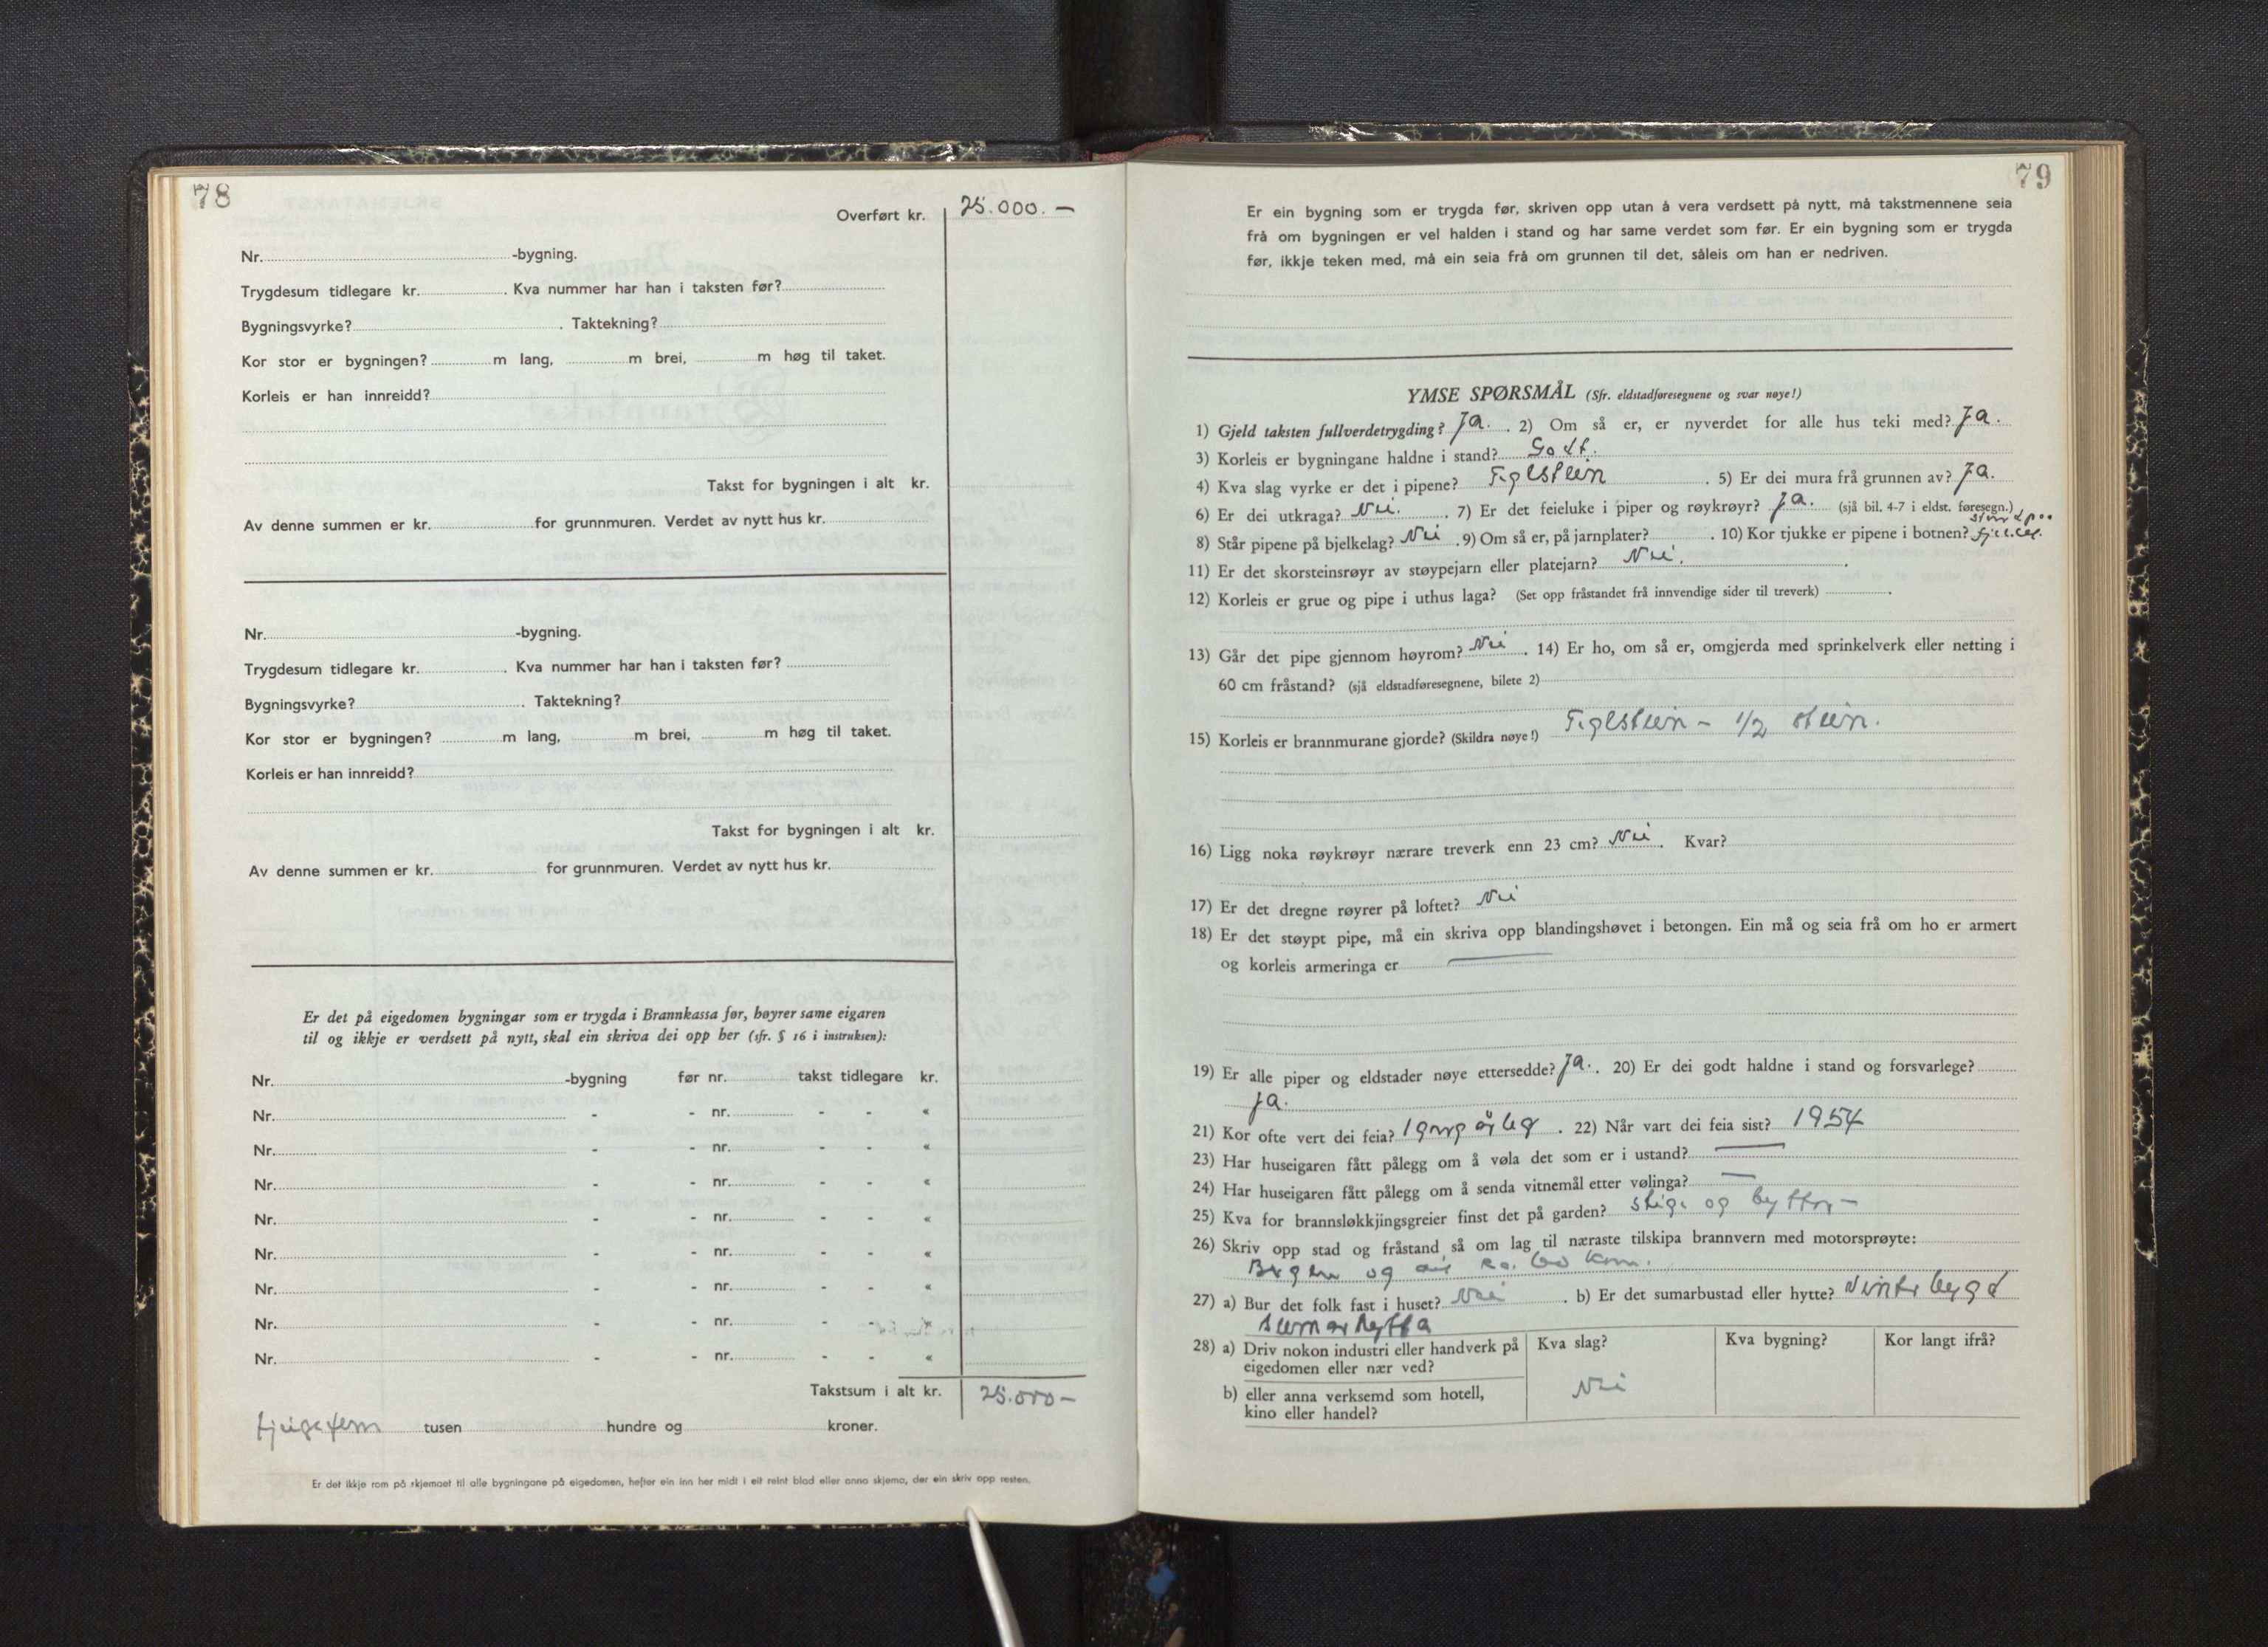 78
Overført kr. 25.000.—
Nr. -bygning.
Trygdesum tidlegare kr. . Kva nummer har han i taksten før?
Bygningsvyrke? . Taktekning?
Kor stor er bygningen? m lang, m brei, m høg til taket.
Korleis er han innreidd?
Takst for bygningen i alt kr.
Av denne summen er kr. for grunnmuren. Verdet av nytt hus kr.
Nr. -bygning.
Trygdesum tidlegare kr. . Kva nummer har han i taksten før?
Bygningsvyrke? . Taktekning?
Kor stor er bygningen? m lang, m brei, m høg til taket.
Korleis er han innreidd?
Takst for bygningen i alt kr.
Av denne summen er kr. for grunnmuren. Verdet av nytt hus kr.
Er det på eigedomen bygningar som er trygda i Brannkassa før, høyrer same eigaren
til og ikkje er verdsett på nytt, skal ein skriva dei opp her (sfr. § 16 i instruksen):
Nr. -bygning før nr. takst tidlegare kr.
Nr. - - nr. - - «
Nr. - - nr. - - «
Nr. - - nr. - - «
Nr. - - nr. - - «
Nr. - - nr. - - «
Nr. - - nr. - - «
Nr. - - nr. - - «
Nr. - - nr. - - «
Takstsum i alt kr. 25.000—
tjugefem tusen hundre og kroner.
Er det ikkje rom på skjemaet til alle bygningane på eigedomen, hefter ein inn her midt i eit reint blad eller anna skjema, der ein skriv opp resten.
79
Er ein bygning som er trygda før, skriven opp utan å vera verdsett på nytt, må takstmennene seia
frå om bygningen er vel halden i stand og har same verdet som før. Er ein bygning som er trygda
før, ikkje teken med, må ein seia frå om grunnen til det, såleis om han er nedriven.
YMSE SPØRSMÅL (Sfr. eldstadføresegnene og svar nøye!)
1) Gjeld taksten fullverdetrygding? Ja. . 2) Om så er, er nyverdet for alle hus teki med? Ja.
3) Korleis er bygningane haldne i stand? Godt.
4) Kva slag vyrke er det i pipene? Tiglstein . 5) Er dei mura frå grunnen av? Ja.
6) Er dei utkraga? Nei. . 7) Er det feieluke i piper og røykrøyr? Ja. (sjå bil. 4-7 i eldst. føresegn.)
8) Står pipene på bjelkelag? Nei . 9) Om så er, på jarnplater? . 10) Kor tjukke er pipene i botnen?
11) Er det skorsteinsrøyr av støypejarn eller platejarn? Nei. .
12) Korleis er grue og pipe i uthus laga? (Set opp fråstandet frå innvendige sider til treverk) .
13) Går det pipe gjennom høyrom? Nei . 14) Er ho, om så er, omgjerda med sprinkelverk eller netting i
60 cm fråstand? (sjå eldstadføresegnene, bilete 2)
15) Korleis er brannmurane gjorde? (Skildra nøye!) Tiglstein – 1/2 stein.
16) Ligg noka røykrøyr nærare treverk enn 23 cm? Nei . Kvar?
17) Er det dregne røyrer på loftet? Nei
18) Er det støypt pipe, må ein skriva opp blandingshøvet i betongen. Ein må og seia frå om ho er armert
og korleis armeringa er —
19) Er alle piper og eldstader nøye ettersedde? Ja. . 20) Er de godt haldne i stand og forsvarlege?
Ja.
21) Kor ofte vert dei feia? 1 gong årleg . 22) Når vart dei feia sist? 1954
23) Har huseigaren fått pålegg om å vøla det som er i ustand? —
24) Har huseigaren fått pålegg om å senda vitnemål etter vølinga? —
25) Kva for brannsløkkjingsgreier finst det på garden? Stige og bytter –
26) Skriv opp stad og fråstand så om lag til næraste tilskipa brannvern med motorsprøyte:
Bergen og km.
27) a) Bur det folk fast i huset? Nei . b) Er det sumarbustad eller hytte? Vinterbygd
sumarhytta
28) a) Driv nokon industri eller handverk på
eigedomen eller nær ved?
Kva slag? Kva bygning? Kor langt ifrå?
b) eller anna verksemd som hotell,
kino eller handel?
Nei